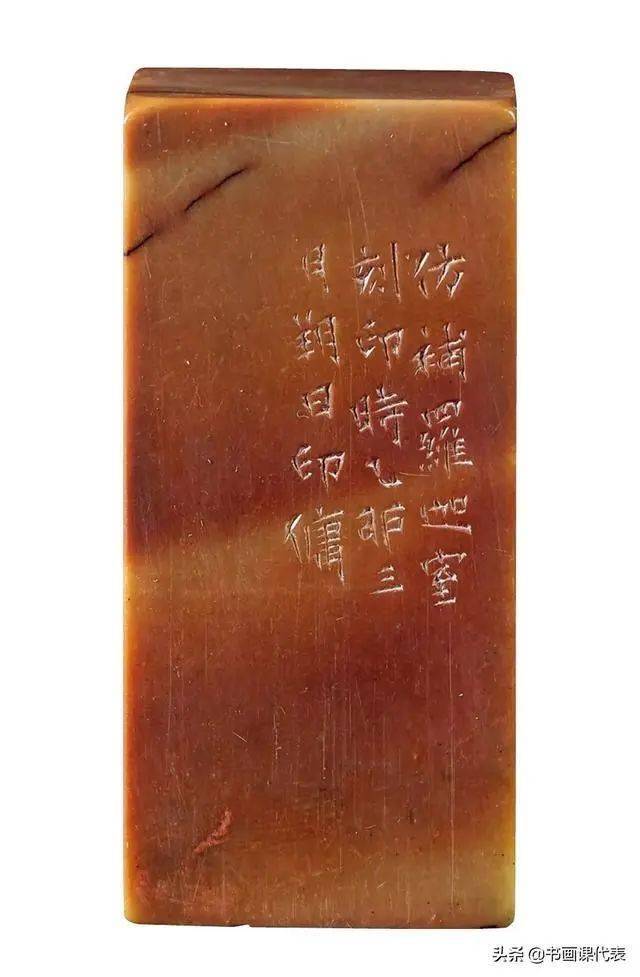 仿補羅迦室
刻印時乙卯三
月朔日印傭
头条 @书画课代表